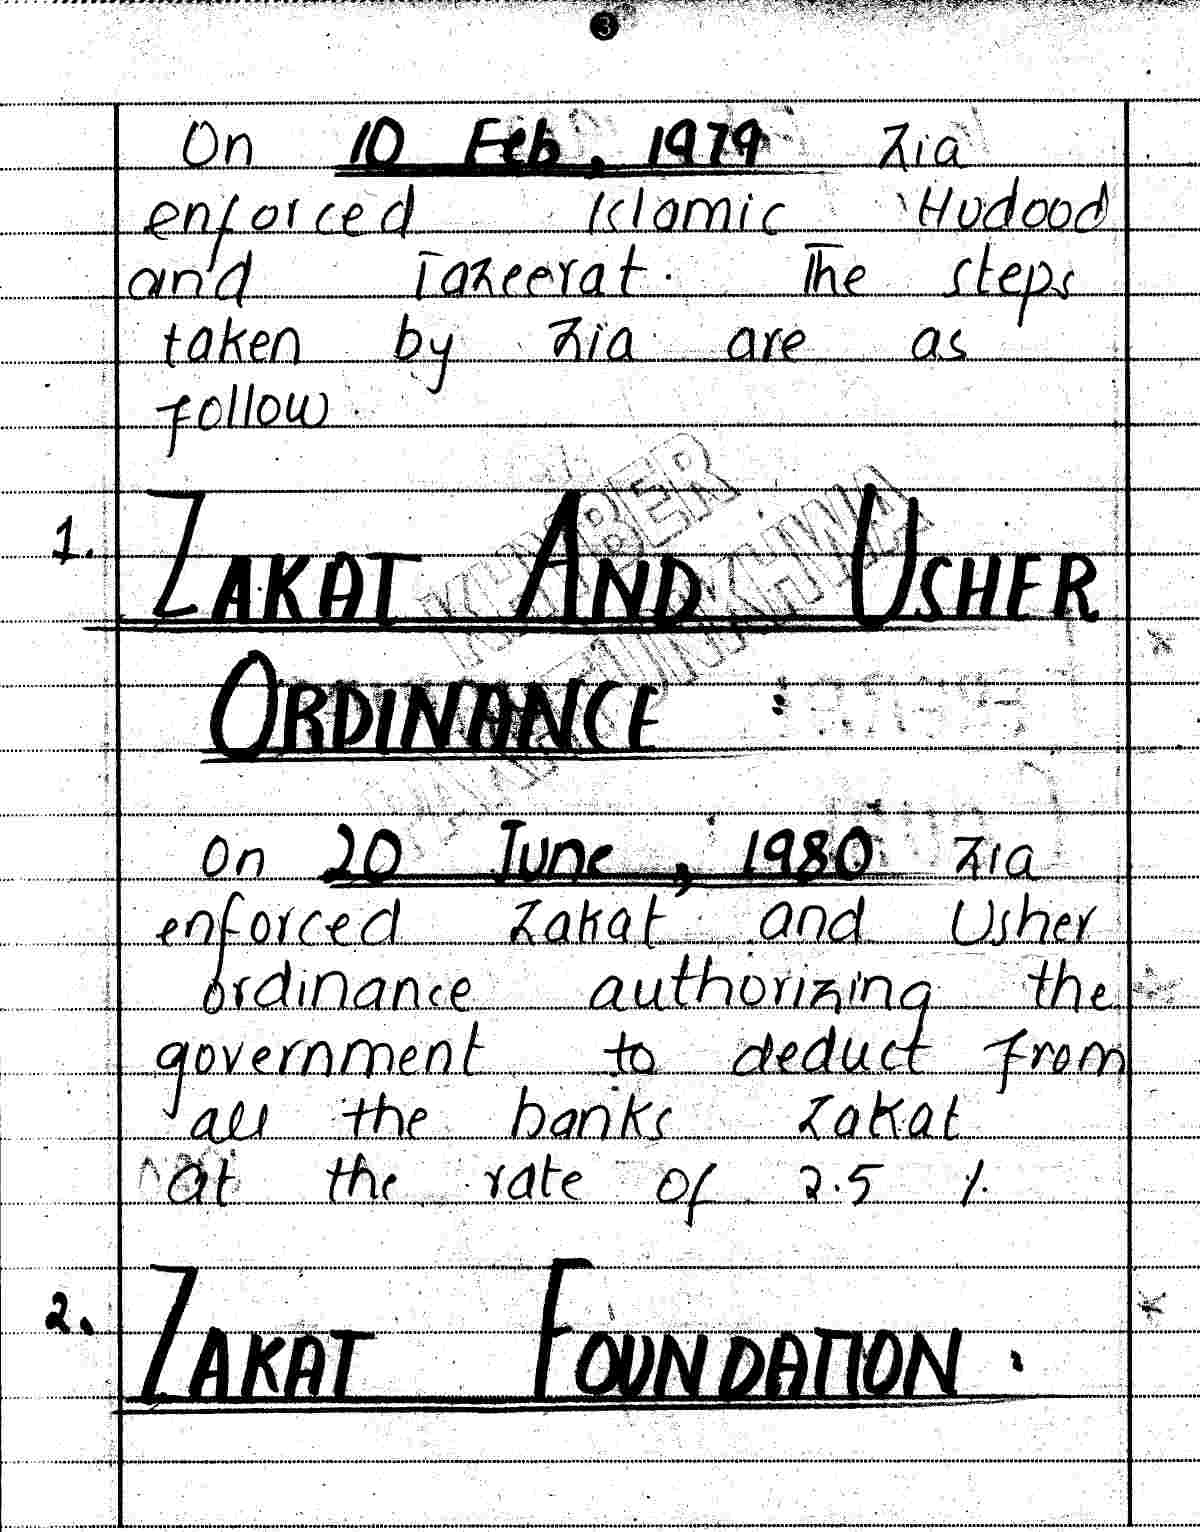 3
On 10 Feb, 1979 Zia
enforced Islamic Hudood
and Tazeerat. The steps
taken by Zia are as
follow.
1. ZAKAT AND USHER
ORDINANCE :
On 20 June, 1980 Zia
enforced Zakat and Usher
ordinance authorizing the
government to deduct from
all the banks Zakat
at the rate of 2.5 %.
2. ZAKAT FOUNDATION :
KHYBER
PAKHTUNKHWA